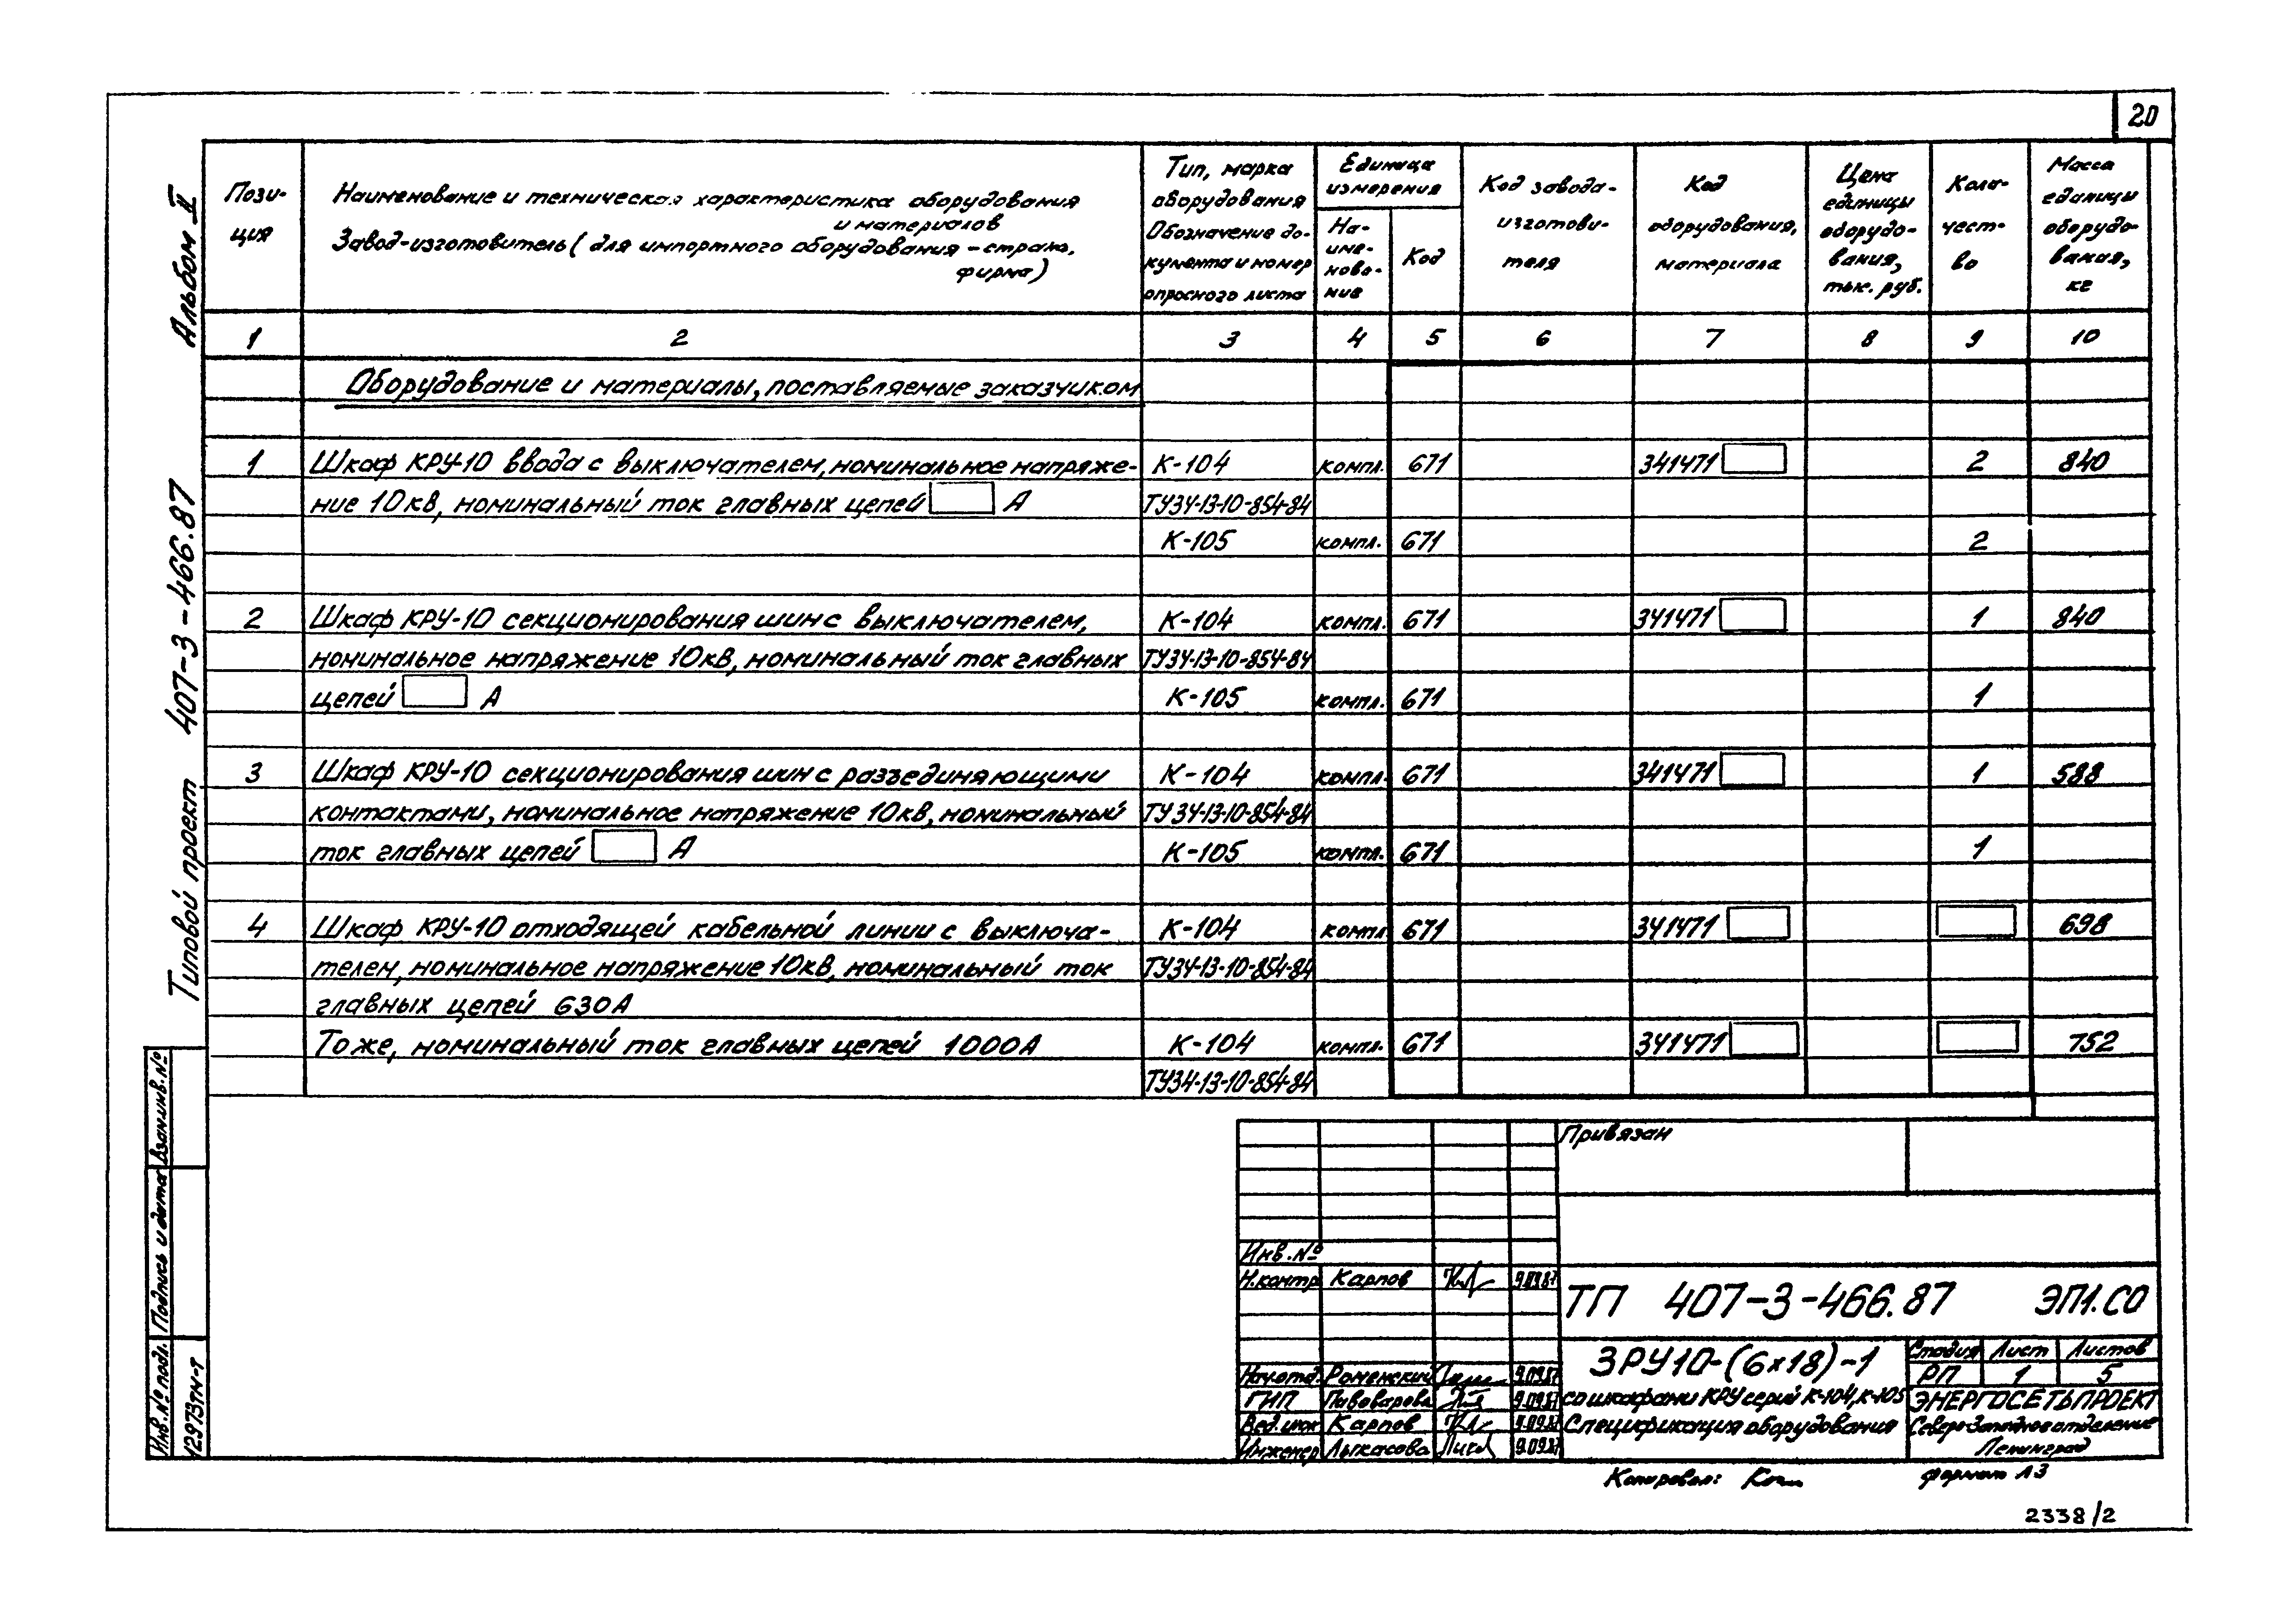 20
Альбом II
Типовой проект 407-3-466.87
Пози-
ция
Наименование и техническая характеристика оборудования
и материалов
Завод-изготовитель (для импортного оборудования - страна,
фирма)
Тип, марка
оборудования
Обозначение до-
кумента и номер
опросного листа
Единица
измерения
На-
име-
нова-
ние
Код
Код завода-
изготови-
теля
Код
оборудования,
материала
Цена
единицы
оборудо-
вания,
тыс. руб.
Коли-
чест-
во
Масса
единицы
оборудо-
вания,
кг
1 2 3 4 5 6 7 8 9 10
Оборудование и материалы, поставляемые заказчиком
1 Шкаф КРУ-10 ввода с выключателем, номинальное напряже- К-104 компл. 671 341471 2 840
ние 10кВ, номинальный ток главных цепей А ТУ34-13-10-854-84
К-105 компл. 671 2
2 Шкаф КРУ-10 секционирования шин с выключателем, К-104 компл. 671 341471 1 840
номинальное напряжение 10кВ, номинальный ток главных ТУ34-13-10-854-84
цепей А К-105 компл. 671 1
3 Шкаф КРУ-10 секционирования шин с разъединяющими К-104 компл. 671 341471 1 588
контактами, номинальное напряжение 10кВ, номинальный ТУ34-13-10-854-84
ток главных цепей А К-105 компл. 671 1
4 Шкаф КРУ-10 отходящей кабельной линии с выключа- К-104 компл 671 341471 698
телем, номинальное напряжение 10кВ, номинальный ток ТУ34-13-10-854-84
главных цепей 630А
Тоже, номинальный ток главных цепей 1000А К-104 компл. 671 341471 752
ТУ34-13-10-854-84
Взам.инв.№
Подпись и дата
Инв.№ подл.
12973тм-т
Привязан
Инв.№
Н.контр Карпов 9.09.87
ТП 407-3-466.87 ЭП1.СО
Нач.отд. Роменский 9.09.87
ГИП Пивоварова 9.09.87
Вед.инж Карпов 9.09.87
Инженер Лыкасова 9.09.87
ЗРУ10-(6х18)-1
со шкафами КРУ серий К-104, К-105
Спецификация оборудования
Стадия Лист Листов
РП 1 5
ЭНЕРГОСЕТЬПРОЕКТ
Северо-Западное отделение
Ленинград
Копировал:
Формат А3
2338/2